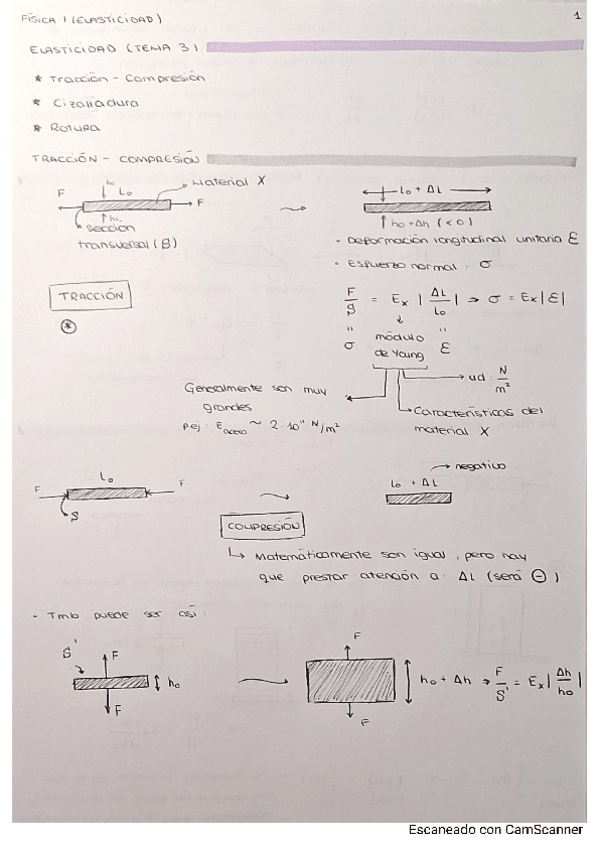 FÍSICA I (ELASTICIDAD)
1
ELASTICIDAD (TEMA 3)
* Tracción - Compresión
* Cizalladura
* Rotura
TRACCIÓN - COMPRESIÓN
F
h₀
L₀
Material X
F
h₀
sección
transversal (S)
L₀ + ΔL
h₀ + Δh (<0)
- Deformación longitudinal unitaria Ɛ
- Esfuerzo normal: σ
TRACCIÓN
*
F/S = Eₓ |ΔL/L₀| → σ = Eₓ|Ɛ|
" "
σ módulo de Young Ɛ
ud: N/m²
Generalmente son muy
grandes
p.ej: E acero ~ 2·10¹¹ N/m²
Características del
material X
L₀
F
F
S
negativo
L₀ + ΔL
COMPRESIÓN
Matemáticamente son igual, pero hay
que prestar atención a: ΔL (será ⊖)
- Tmb puede ser así:
S'
F
h₀
F
F
h₀ + Δh → F/S' = Eₓ|Δh/h₀|
F
Escaneado con CamScanner